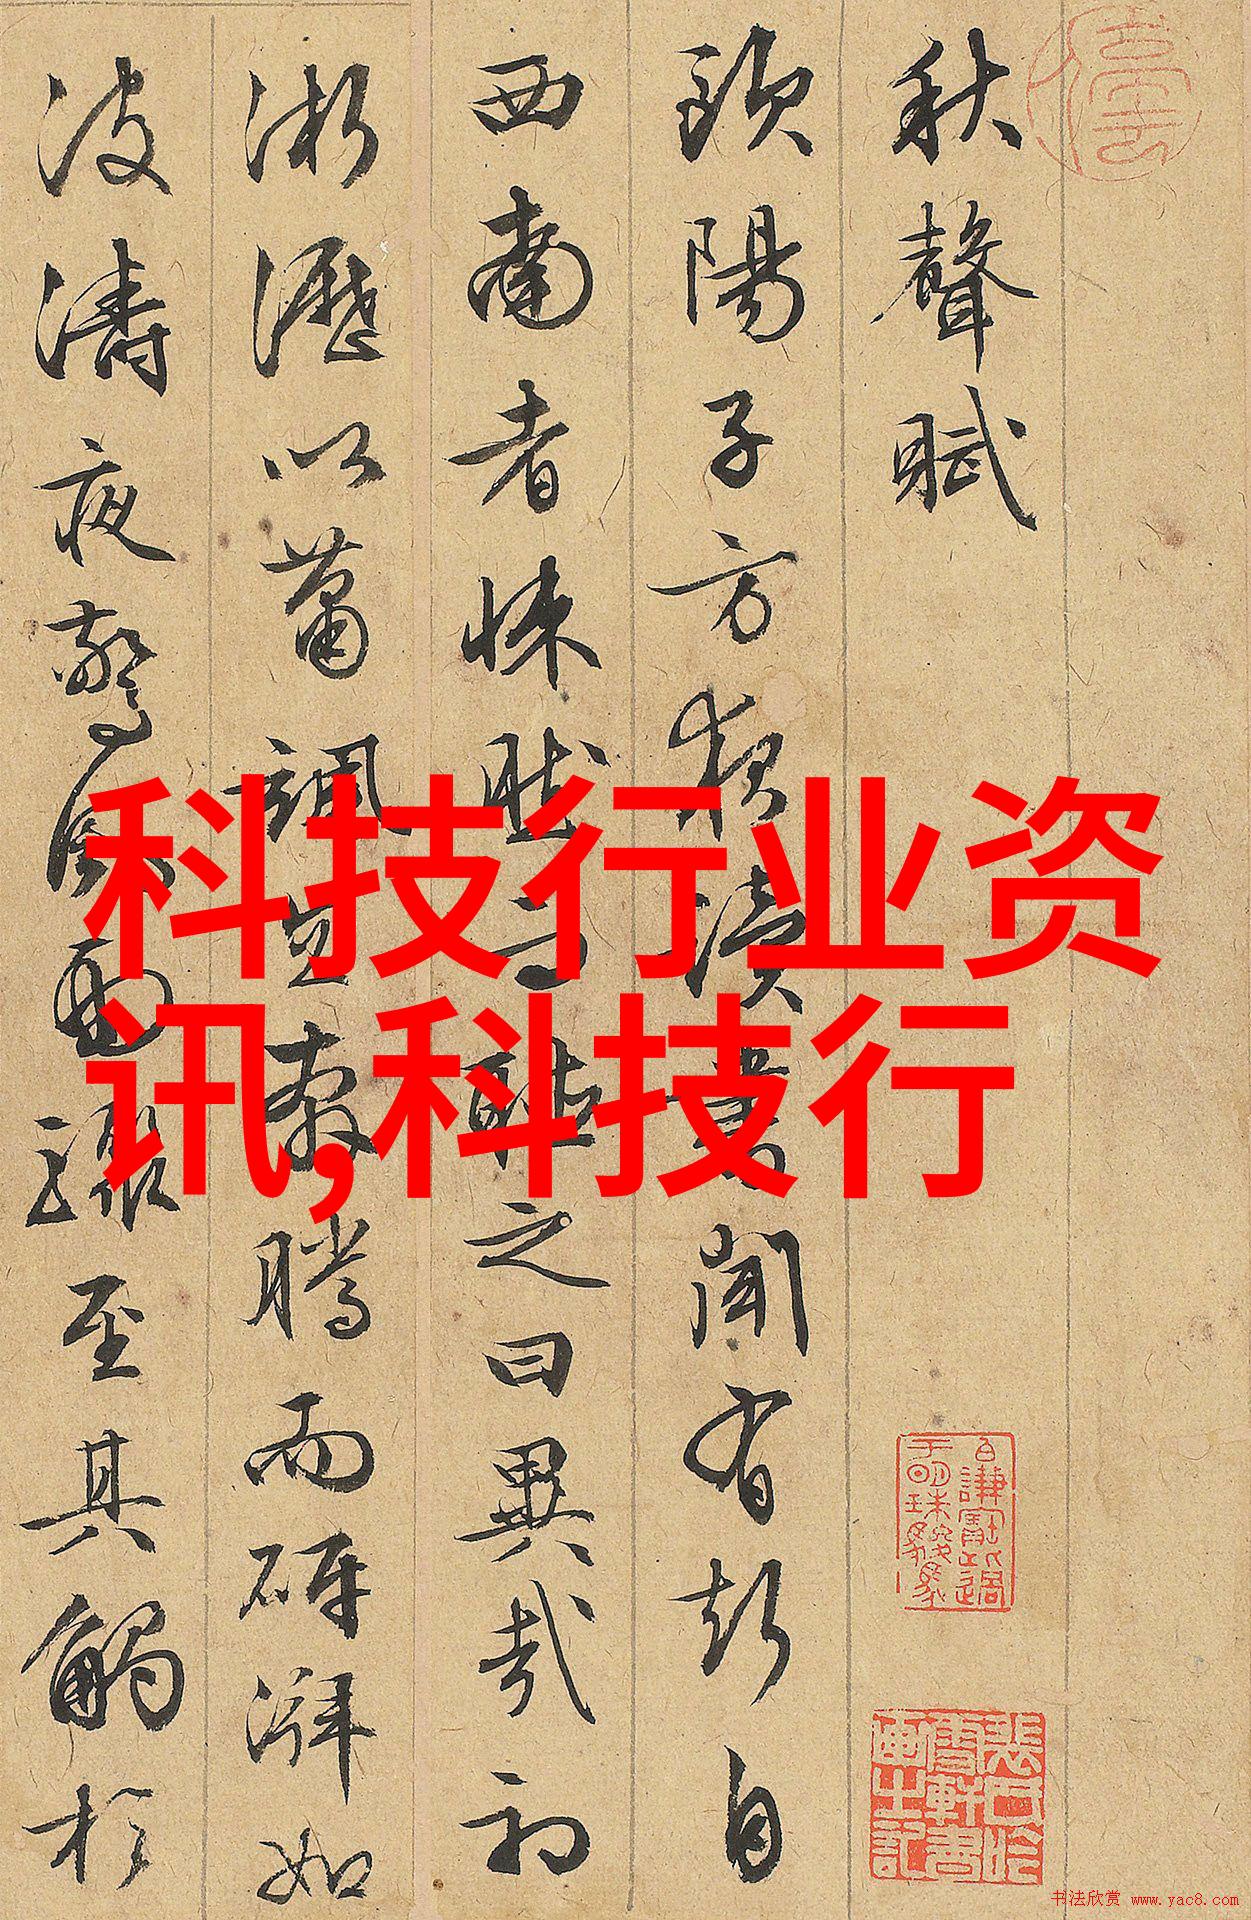 秋聲賦
歐陽子方夜讀書聞有聲自
西南者悚然而聽之曰異哉初
淅瀝以蕭颯忽奔騰而砰湃如
波濤夜驚風雨驟至其觸於
科技行业资
讯,科技行
书法欣赏 www.yac8.com